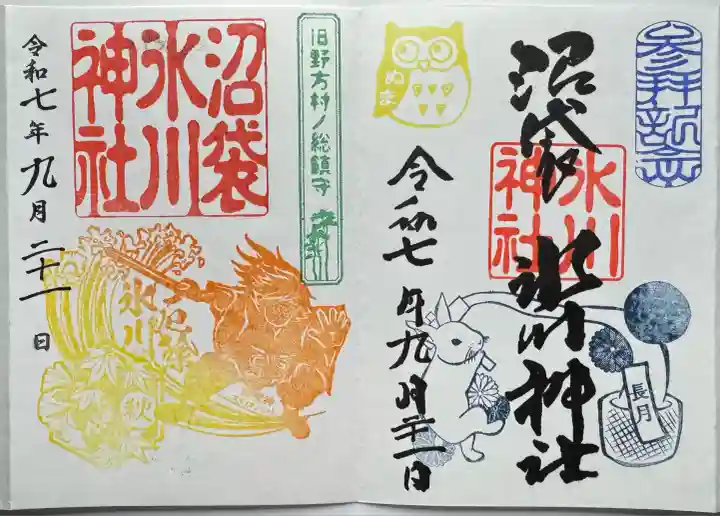 参拝記念
沼袋 氷川神社
氷川
神社
ぬま
令和七年九月二十一日
長月
旧野方村ノ総鎮守
沼袋
氷川
神社
令和七年九月二十一日
氷川
秋